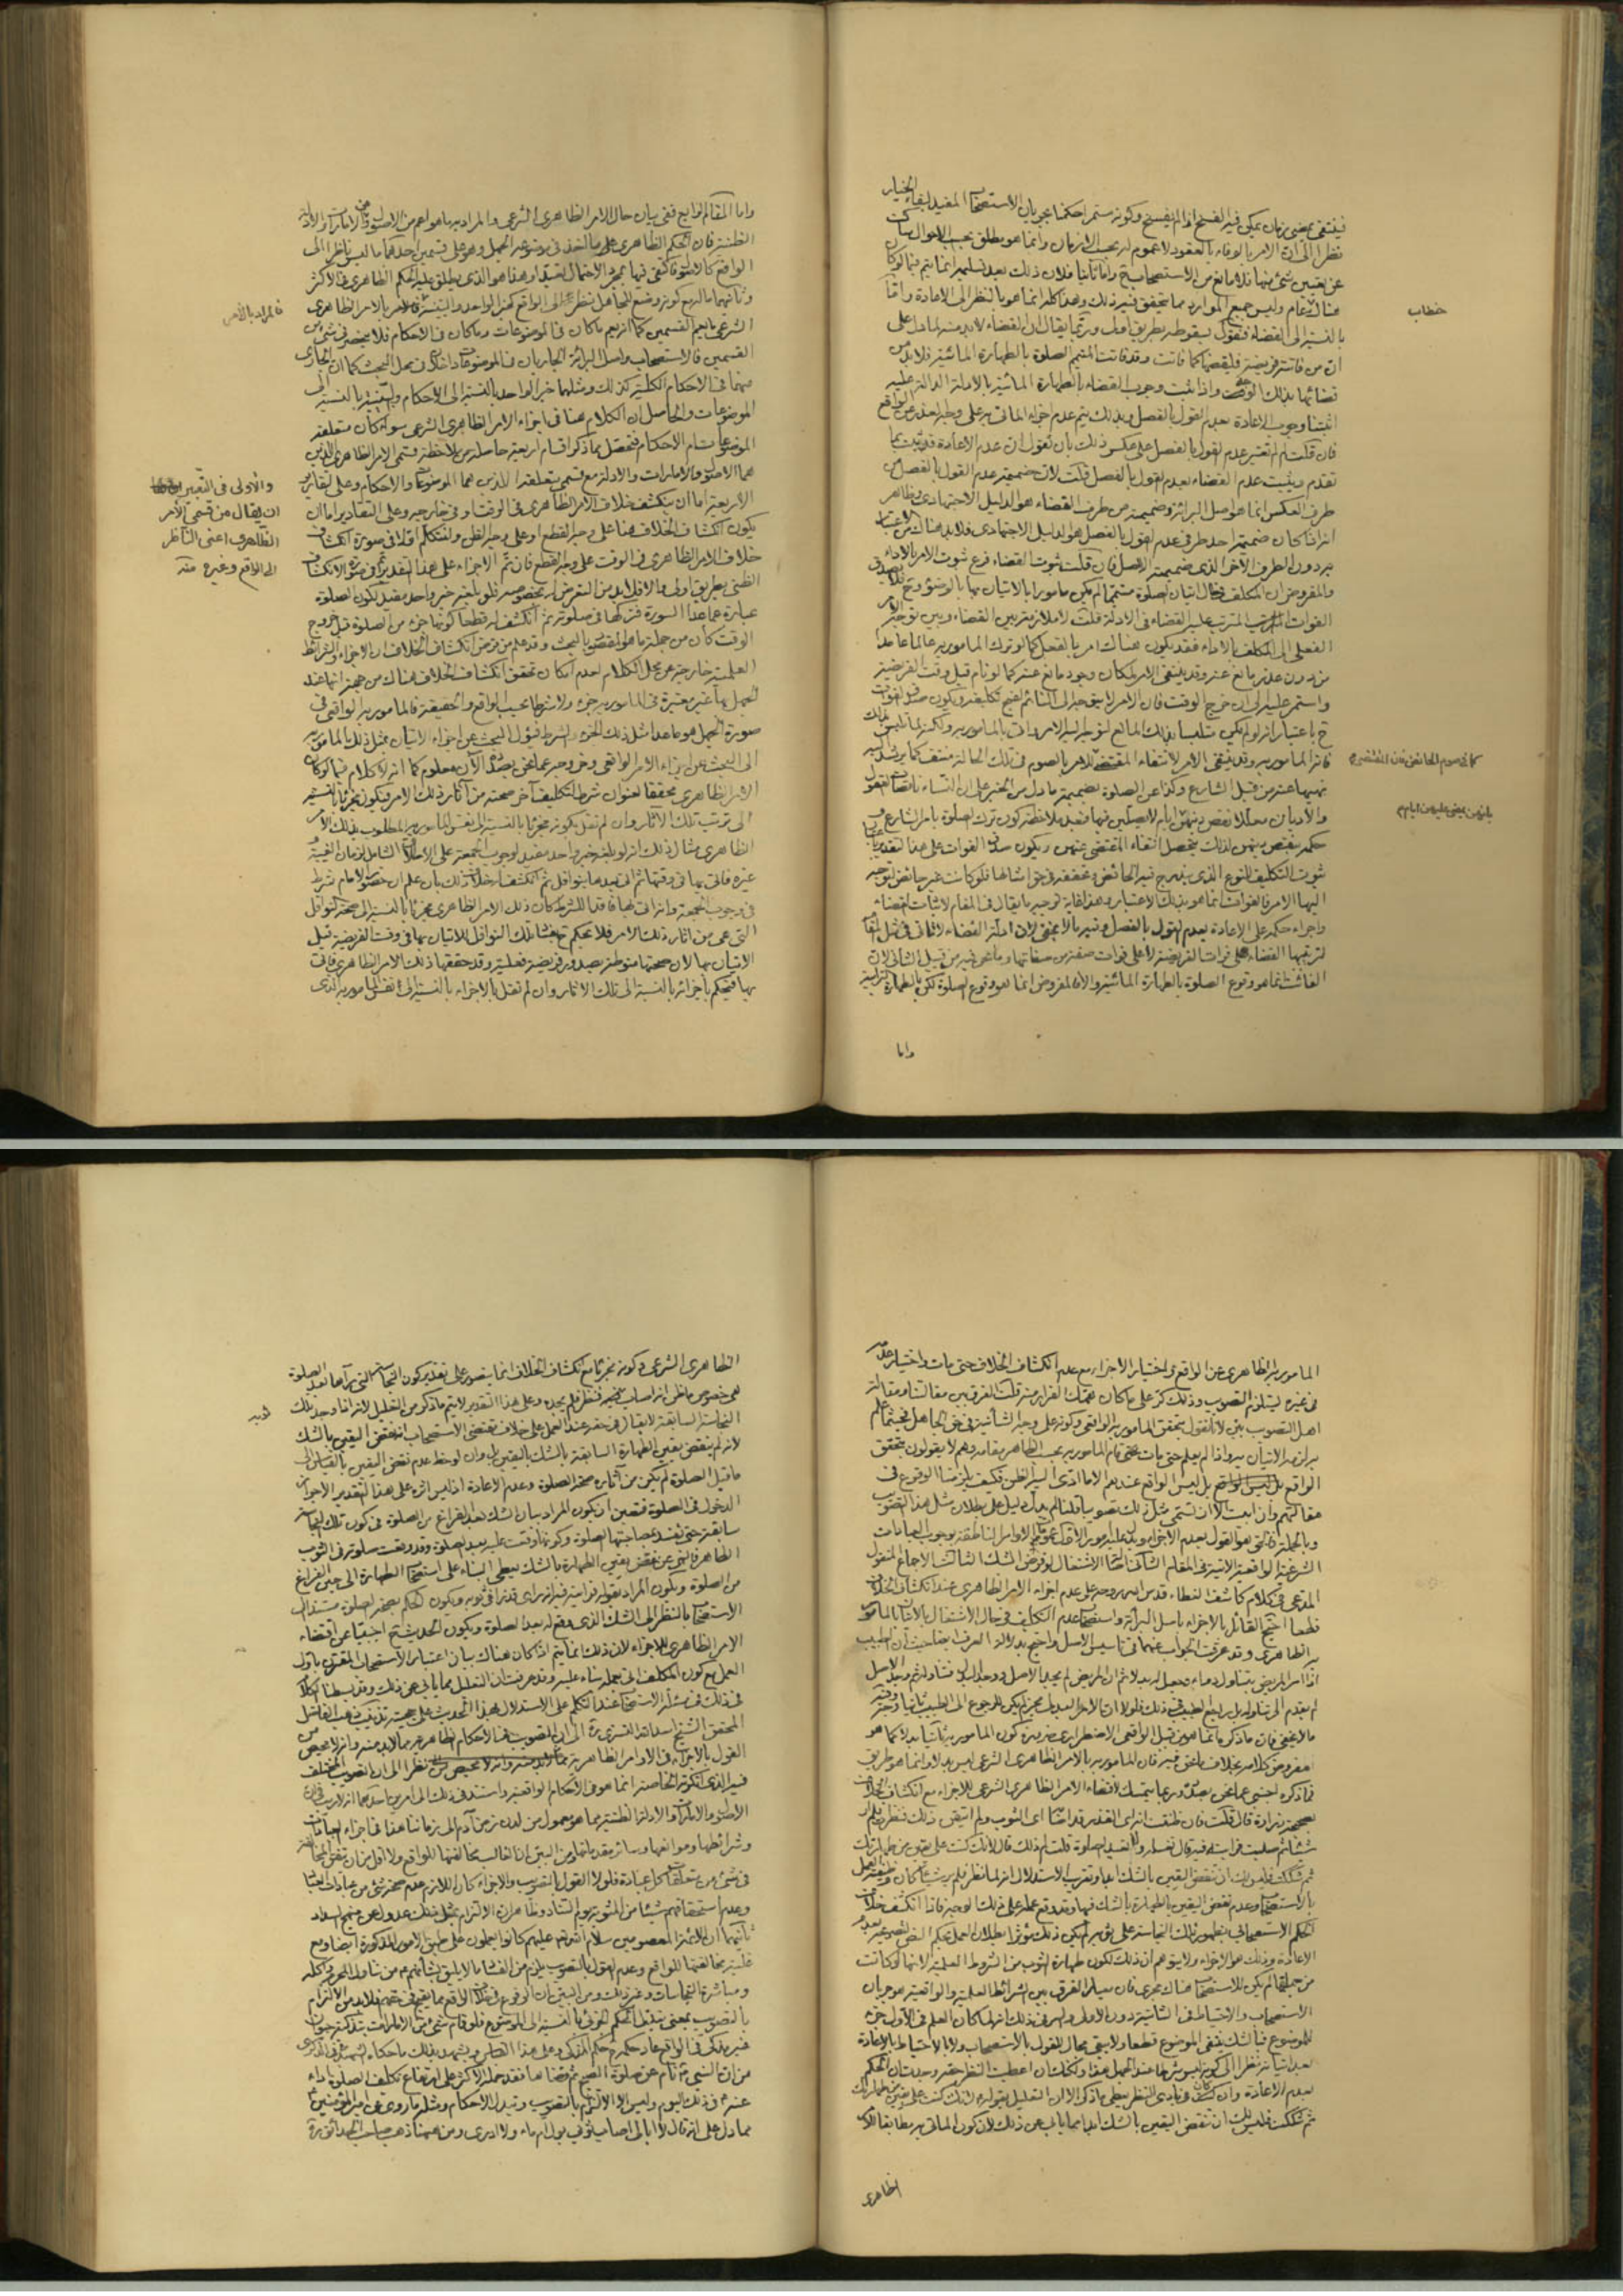 فينتفي بمضي زمان يمكن فيه الفسخ اذا لم يفسخ وكونه مستمرا حكمنا بجريان الاستصحاب المفيد لبقاء الخيار
نظرا الى ان الامر بالوفاء بالعقود لا عموم له بحسب الازمان وانما هو مطلق بحسب الاحوال ساكت
عن تعيين شيء منها فلا مانع من الاستصحاب ح واما ثانيا فلان ذلك بعد تسليمه انما يتم فيما لو كان
هناك عام وليس جميع الموارد مما يتحقق فيه ذلك وهذا كله انما هو بالنظر الى الاعادة واما
خطاب
بالنسبة الى القضاء فنقول بسقوطه بطريق اولى وربما يقال ان القضاء لا بد منه لما دل على
ان من فاتته فريضة فليقضها كما فاتت وقد فاتت المتيمم الصلوة بالطهارة المائية فلا بد من
قضائها بذلك الوصف واذا ثبت وجوب القضاء بالطهارة المائية بالادلة الدالة عليه
اثبتنا وجوب الاعادة بعدم القول بالفصل وبذلك يتم عدم اجزاء الماتي به على وجه العذر عن الواقع
فان قلت لم لم تعتبر عدم القول بالفصل على عكس ذلك بان نقول ان عدم الاعادة قد ثبت بما
تقدم ويثبت عدم القضاء بعدم القول بالفصل قلت لان ضميمة عدم القول بالفصل من
طرف العكس انما هو اصل البرائة وضميمته من طرف القضاء هو الدليل الاجتهادي وظاهر
انه اذا كان ضميمة احد طرفي عدم القول بالفصل هو الدليل الاجتهادي فلا بد هناك من الاعتبار
به دون الطرف الاخر الذي ضميمته الاصل فان قلت ثبوت القضاء فرع ثبوت الامر بالاداء
والمفروض ان المكلف حال اتيان الصلوة متيمما لم يكن مامورا بالاتيان بها بالوضوء وح فلا يصدق
الفوات المترتب عليه القضاء في الادلة قلت لا ملازمة بين القضاء وبين توجه الامر
الفعلي الى المكلف بالاداء فقد يكون هناك امر بالفعل كما لو ترك المامور به عالما عامدا
من دون عذر مانع عنه وقد ينتفي الامر لمكان وجود مانع عنه كما لو نام قبل وقت الفريضة
واستمر عليه الى ان خرج الوقت فان الامر لا يتوجه الى النائم لقبح تكليفه ويكون صدق الفوت
ح باعتبار انه لو لم يكن متلبسا بذلك المانع لتوجه اليه الامر وات بالمامور به ولكنه لما تلبس بذلك
فاته المامور به وقد ينتفي الامر لانتفاء المقتضي للامر بالصوم في تلك الحالة منتف كما يرشد اليه
كما في صوم الحائض فان المقتضي
نهيها عنه من قبل الشارع وكذا عن الصلوة بضميمة ما دل من الخبر على ان النساء ناقصات العقول
والاديان معللا نقص دينهن
بانهن يمضي عليهن ايام
ايام لا يصلين فيها فبملاحظة كون ترك الصلوة بامر الشارع
حكمه بنقص دينهن لذلك يتحصل انتفاء المقتضي عنهن ويكون صدق الفوات على هذا التقدير باعتبار
ثبوت التكليف للنوع الذي يندرج فيه الحائض وتحققه في حق امثالها فلو كانت غير حائض لتوجه
اليها الامر فالفوات انما هو بذلك الاعتبار وهذا غاية توجيه ما يقال في المقام لاثبات القضاء
واجراء حكمه على الاعادة بعدم القول بالفصل وفيه ما لا يخفى لان ادلة القضاء لا تاتي في مثل المقام
لترتبها القضاء على فوات الفريضة لا على فوات صفة من صفاتها وما نحن فيه من قبيل الثاني لان
الفائت انما هو وقوع الصلوة بالطهارة المائية والا فالمفروض انما هو وقوع الصلوة لكن بالطهارة الترابية
واما
واما المقام الرابع ففي بيان حال الامر الظاهري الشرعي والمراد به ما هو اعم من الاصول ومن الامارات والادلة
الظنية فان الحكم الظاهري على ما اخذ في موضوعه الجهل وهو على قسمين احدهما ما ليس ناظرا الى
الواقع كالاصول فاكتفي فيها بمجرد الاحتمال تعبدا وهذا هو الذي يطلق عليه الحكم الظاهري في الاكثر
وثانيهما ما اليه مع كونه وضع للجاهل نظر الى الواقع كخبر الواحد والبينة فالامر بالامر الظاهري
فالمراد بالامر
الشرعي ما يعم القسمين كما انه يعم ما كان في الموضوعات وما كان في الاحكام فلا ينحصر في شيء من
القسمين فالاستصحاب واصل البرائة الجاريان في الموضوعات داخلان في محل البحث كما ان الجاري
منهما في الاحكام الكلية كذلك ومثلهما خبر الواحد بالنسبة الى الاحكام والبينة بالنسبة الى
الموضوعات والحاصل ان الكلام هنا في اجزاء الامر الظاهري الشرعي سواء كان متعلقه
الموضوعات ام الاحكام فتحصل مما ذكر اقسام اربعة حاصلة من ملاحظة قسمي الامر الظاهري اللذين
هما الاصول والامارات والادلة مع قسمي متعلقه اللذين هما الموضوعات والاحكام وعلى التقادير
والاولى في التعبير
ان يقال من قسمي الأمر
الظاهري اعني الناظر
الى الواقع وغيره منه
الاربعة اما ان ينكشف خلاف الامر الظاهري في الوقت او في خارجه وعلى التقادير اما ان
يكون انكشاف الخلاف هنا على وجه القطع او على وجه الظن ولنتكلم اولا في صورة انكشاف
خلاف الامر الظاهري في الوقت على وجه القطع فان تم الاجزاء على هذا التقدير ثم في صورة الانكشاف
الظني بطريق اولى والا فلا بد من التعرض له بخصوصه فلو بلغه خبر واحد مفيد لكون الصلوة
عبارة عما عدا السورة فتركها في صلوته ثم انكشف له قطعا كونها جزء من الصلوة قبل خروج
الوقت كان من جملة ما هو المقصود بالبحث وقد علم من فرض انكشاف الخلاف ان الاجزاء والشرائط
العلمية خارجة عن محل الكلام لعدم امكان تحقق انكشاف الخلاف هناك من جهة انها عند
الجهل بها غير معتبرة في المامور به جزء ولا شرطا بحسب الواقع والحقيقة فالمامور به الواقعي في
صورة الجهل هو ما عدا مثل ذلك الجزء والشرط فيؤل البحث عن اجزاء الاتيان بمثل ذلك المامور به
الى البحث عن اجزاء الامر الواقعي وخروجه عما نحن بصدده الآن معلوم كما انه لا كلام فيما لو كان
الامر الظاهري محققا لعنوان شرط التكليف آخر صحته من آثار ذلك الامر فيكون مجزيا بالنسبة
الى ترتب تلك الآثار وان لم نقل بكونه مجزيا بالنسبة الى نفس المامور به المطلوب بذلك الامر
الظاهري مثال ذلك انه لو بلغه خبر واحد مفيد لوجوب الجمعة على الاطلاق الشامل لزمان الغيبة و
غيره فاتى بها في وقتها ثم اتى بعدها بنوافل ثم انكشف خلاف ذلك بان علم ان حضور الامام شرط
في وجوب الجمعة وانه اتى بها فاقدا للشرط كان ذلك الامر الظاهري مجزيا بالنسبة الى صحة النوافل
التي هي من اثار ذلك الامر فلا يحكم بفساد تلك النوافل للاتيان بها في وقت الفريضة قبل
الاتيان بها لان صحتها منوطة بصدور فريضة فعلية وقد حققها ذلك الامر الظاهري فاتى
بها فيحكم باجزائه بالنسبة الى تلك الاثار وان لم نقل بالاجزاء بالنسبة الى نفس المامور به الذي
المامور به الظاهري عن الواقع واختيار الاجزاء مع عدم انكشاف الخلاف حتى مات واختيار عدمه
في غيره يستلزم التصويب وذلك كر على ما كان عمدتك الفرار منه قلت الفرق بين مقالتنا ومقالة
اهل التصويب بين لانا نقول بتحقق المامور به الواقعي وكونه على وجه الشأنية في حق الجاهل فحيثما علم
به لزمه الاتيان به واذا لم يعلم حتى مات يكفي قيام المامور به بحسب الظاهر مقامه وهم لا يقولون بتحقق
الواقع بل ليس الواقع عندهم الا ما ادى اليه الظن فكيف يلزمنا الوقوع في
مقالتهم وان ابيت الا ان تسمي مثل ذلك تصويبا قلنا لم يدل دليل على بطلان مثل هذا التصويب
وبالجملة فالحق هو القول بعدم الاجزاء ويدل عليه امور الاول عموم الاوامر الناطقة بوجوب العبادات
الشرعية الواقعية الاتية في المقام الثاني قاعدة الاشتغال لو فرض الشك الثالث الاجماع المنقول
المدعى في كلام كاشف الغطاء قدس سره روحه على عدم اجزاء الامر الظاهري عند انكشاف الخلاف
قطعا احتج القائل بالاجزاء باصل البرائة واستصحاب عدم التكليف في حال الاشتغال بالاتيان بالمامور
به الظاهري وقد عرفت الجواب عنهما في تاسيس الاصل واحتج بدلالة العرف ايضا حيث ان الطبيب
اذا امر المريض بتناول دواء وجعل له بدلا ثم ان المريض لم يجد الاصل ووجد البدل فتناوله ثم وجد الاصل
لم يقدم الى تناوله بل يراجع الطبيب في ذلك فلولا ان الامر البديل مجز لم يكن للرجوع الى الطبيب ثانيا وجه وفيه
ما لا يخفى فان ما ذكره انما هو من قبيل الواقعي الاضطراري ضرورة كون المامور به ثانيا بدلا كما هو
مفروض كلامه بخلاف ما نحن فيه فان المامور به بالامر الظاهري الشرعي ليس بدلا وانما هو طريق
فما ذكره اجنبي عما نحن بصدده وربما يتمسك لاقتضاء الامر الظاهري الشرعي للاجزاء مع انكشاف الخلاف
بصحيحة زرارة قال قلت فان ظننت انه اي القذر قد اصابه اي الثوب ولم اتيقن ذلك فنظرت فلم ار
شيئا ثم صليت فرايت فيه قال تغسله ولا تعيد الصلوة قلت لم ذلك قال لانك كنت على يقين من طهارتك
ثم شككت فليس لك ان تنقض اليقين بالشك ابدا وتقريب الاستدلال انه لما نظر فلم ير شيئا كان وظيفته العمل
بالاستصحاب وعدم نقض اليقين بالطهارة بالشك فيها وقد وقع عمله على ذلك الوجه فاذا انكشف خلاف
الحكم الاستصحابي بظهور تلك النجاسة على ثوبه لم يكن ذلك مؤثرا لبطلان العمل بحكم النص الصحيح بعدم
الاعادة وذلك هو الاجزاء ولا يتوهم ان ذلك لكون طهارة الثوب من الشروط العلمية لانها لو كانت
من جملتها لم يكن للاستصحاب هناك مجرى فان معيار الفرق بين الشرائط العلمية والواقعية هو جريان
الاستصحاب والاحتياط في الثانية دون الاولى والسر في ذلك انه لما كان العلم في الاول جزء
للموضوع فبالشك ينتفي الموضوع قطعا ولا يبقى مجال للقول بالاستصحاب ولا بالاحتياط بالاعادة
بعد اتيانه نظرا الى كونه ليس شرطا عند الجهل هذا ولكنك ان اعطيت النظر حقه وجدت ان الحكم
بعدم الاعادة وان كان في بادي النظر يعطي ما ذكر الا ان التعليل بقوله لانك كنت على يقين من طهارتك
ثم شككت فليس لك ان تنقض اليقين بالشك ابدا مما يابى عن ذلك لان كون الماتي به مطابقا للامر
الظاهري
الظاهري الشرعي وكونه مجزيا مع انكشاف الخلاف انما يتصور على تقدير كون النجاسة التي رآها بعد الصلوة
هي خصوص ما ظن انه اصاب ثوبه فنظر فلم يجده وعلى هذا التقدير لا يتم ما ذكر من التعليل لانه اذا وجد تلك
ثوبه
النجاسة السابقة لا يقال في حقه عند العمل على خلاف مقتضى الاستصحاب انه نقض اليقين بالشك
لانه لم ينقض يقين الطهارة السابقة بالشك بل باليقين بل وان لوحظ عدم نقض اليقين بالقياس الى
ما قبل الصلوة لم يكن من آثاره صحة الصلوة وعدم الاعادة اذ ليس اثره على هذا التقدير الا جواز
الدخول في الصلوة فتعين ان يكون المراد بيان الشك بعد الفراغ من الصلوة في كون تلك النجاسة
سابقة حتى تفسد بمصاحبتها الصلوة وكونها وقعت عليه بعد الصلوة وقد وقعت صلوته في الثوب
الطاهر فالنهي عن نقض يقين الطهارة بالشك يعطي البناء على استصحاب الطهارة الى حين الفراغ
من الصلوة ويكون المراد بقوله فرايت فيه انه راى قذرا في ثوبه ويكون الحكم بصحة الصلوة مستندا الى
الاستصحاب بالنظر الى الشك الذي وقع له بعد الصلوة ويكون الحديث ح اجنبيا عن اقتضاء
الامر الظاهري للاجزاء لان ذلك انما يتم اذا كان هناك بيان اعتبار الاستصحاب المقترن باول
العمل مع كون المكلف اتى بعمله بناء عليه وقد عرفت ان التعليل مما يابى عن ذلك وقد بسطنا الكلام
في ذلك في مسئلة الاستصحاب عند التكلم على الاستدلال بهذا الحديث على حجيته تذنيب ذهب الفاضل
المحقق الشيخ اسد الله التستري ره الى ان التصويب في الاحكام الظاهرية مما لا بد منه وانه لا محيص من
القول بالاجزاء في الاوامر الظاهرية نظرا الى ان التصويب المختلف
فيه الذي انكرته الخاصة انما هو في الاحكام الواقعية واستند في ذلك الى امرين احدهما انه لا ريب في ان
الاصول والامارات والادلة الظنية مما هو معمول من لدن زمن آدم الى زماننا هذا في اجزاء العبادات
وشرائطها وموانعها وسائر مقدماتها ومن البين ان الغالب مخالفتها للواقع ولا اقل من ان تتفق المخالفة
في شيء من متعلقات كل عبادة فلولا القول بالتصويب والاجزاء كان اللازم عدم صحة شيء من عبادات العباد
وعدم استحقاقهم شيئا من المثوبة يوم التناد وظاهر ان الالتزام بمثل ذلك عدول عن منهج السداد
ثانيهما ان الائمة المعصومين سلام الله عليهم كانوا يعملون على طبق الامور المذكورة ايضا ومع
غلبة مخالفتها للواقع وعدم القول بالتصويب يلزم من الفساد ما لا يليق بشانهم ع من تناول المحرم واكله
ومباشرة النجاسات وغير ذلك ومن البين ان الوقوع في خلاف الواقع مما يقبح في حقهم فلا بد من الالتزام
بالتصويب بمعنى تبدل الحكم الجزئي بالنسبة الى الموضوع فلو قام شيء من الامارات بتذكية حيوان
غير مذكى في الواقع عاد حكمه حكم المذكى وعلى هذا القياس ويشهد بذلك ما حكاه الشهيد في الذكرى
من ان النبي ص نام عن صلوة الصبح ثم قضاها فقد حمله الاكثر على ارتفاع تكليف الصلوة اداء
عنه ص في ذلك اليوم وليس الا الالتزام بالتصويب وتبدل الاحكام ومثله ما روى عن امير المؤمنين ع
مما دل على انه قال لا ابالي اصاب ثوبي بول ام ماء ولا ادري ومن هنا ذهب صاحب الحدائق ره